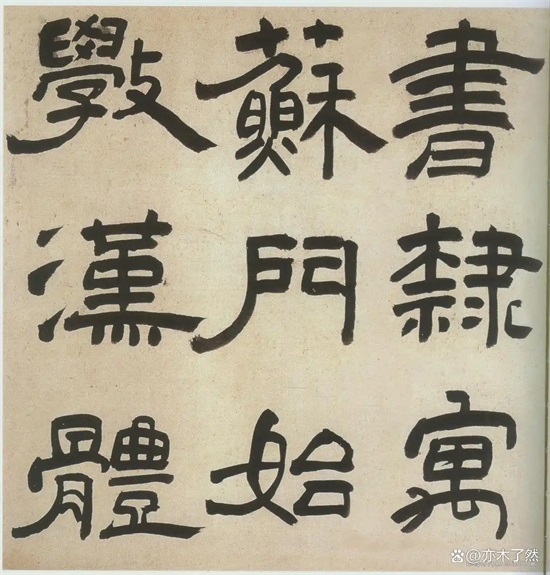 書隸寓
蘇門始
斅漢體
@亦木了然